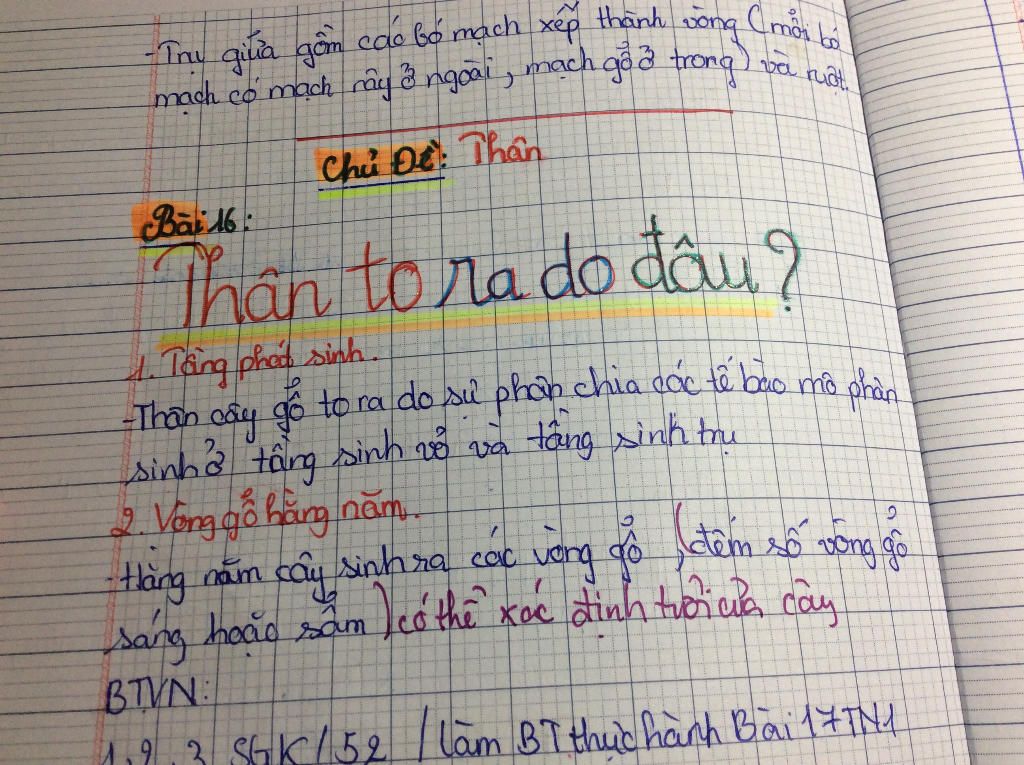 -Trụ giữa gồm các bó mạch xếp thành vòng (mỗi bó
mạch có mạch rây ở ngoài, mạch gỗ ở trong) và ruột.
Chủ Đề: Thân
Bài 16:
Thân to ra do đâu?
1. Tầng phát sinh.
-Thân cây gổ to ra do sự phân chia các tế bào mô phân
sinh ở tầng sinh vỏ và tầng sinh trụ
2. Vòng gổ hằng năm.
-Hàng năm cây sinh ra các vòng gổ, (đếm số vòng gổ
sáng hoặc sẫm) có thể xác định tuổi của cây
BTVN:
1, 2, 3 SGK/52 / làm BT thực hành Bài 17 TN1